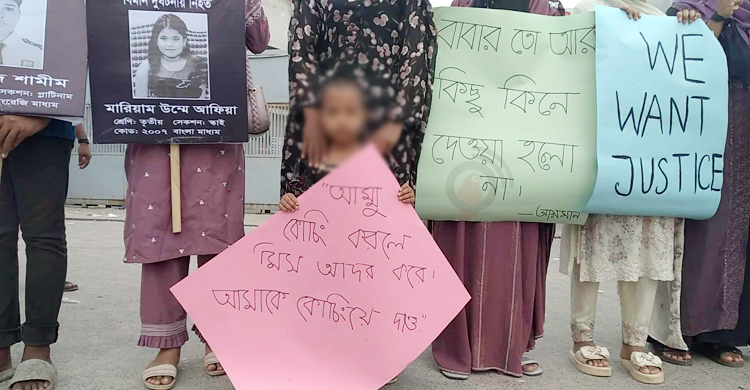 জ শামীম
সেকশন: প্লাটিনাম
ইংরেজি মাধ্যম
বিমান দুর্ঘটনায় নিহত
মারিয়াম উম্মে আফিয়া
শ্রেণি: তৃতীয় সেকশন: স্কাই
কোড: ২০০৭ বাংলা মাধ্যম
"আম্মু
কোচিং করলে
মিস আদর করে।
আমাকে কোচিংয়ে দাও"
বাবার তো আর
কিছু কিনে
দেওয়া হলো
না।
— আয়মান
WE
WANT
JUSTICE